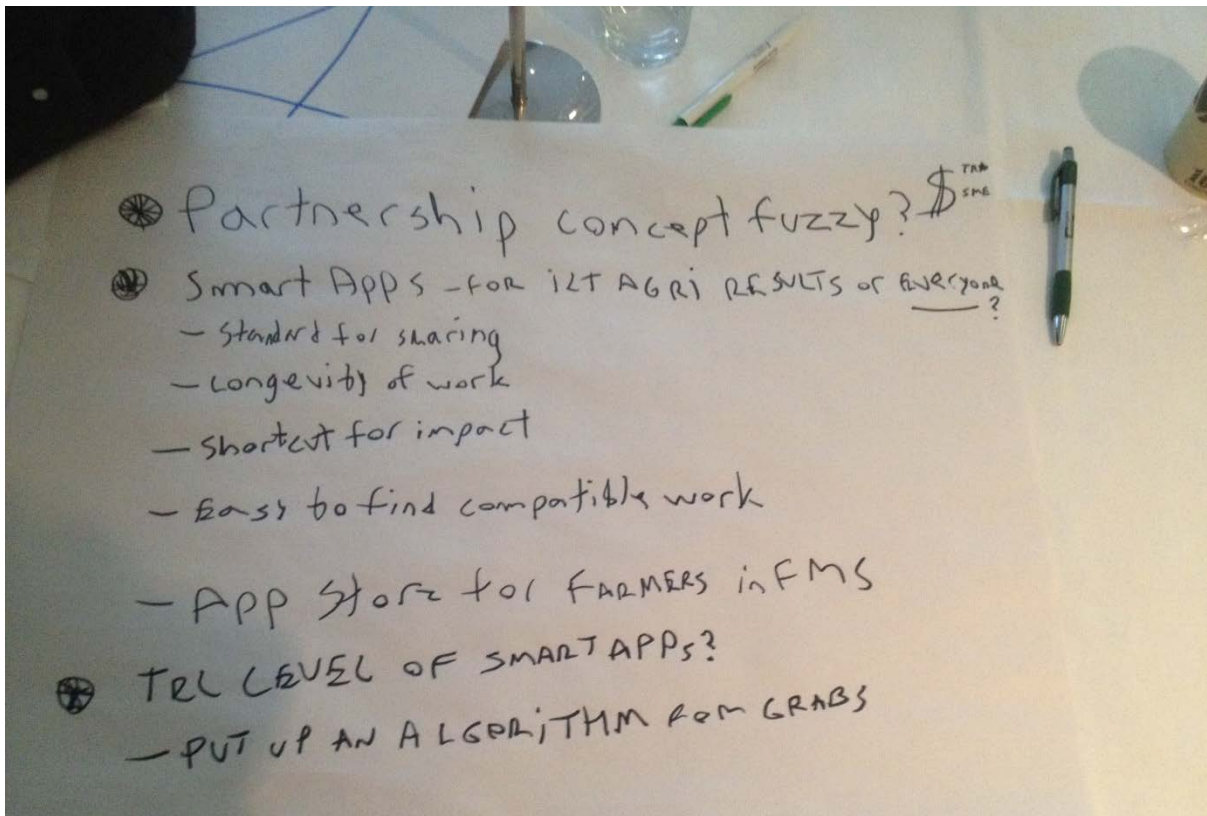 Partnership concept fuzzy? $
SME
Smart Apps - FOR ICT AGRI RESULTS or Everyone?
- Standard for sharing
- Longevity of work
- Shortcut for impact
- Easy to find compatible work
- APP Store for FARMERS in FMS
TRL LEVEL OF SMART APPS?
- PUT UP AN ALGORITHM FOR GRABS